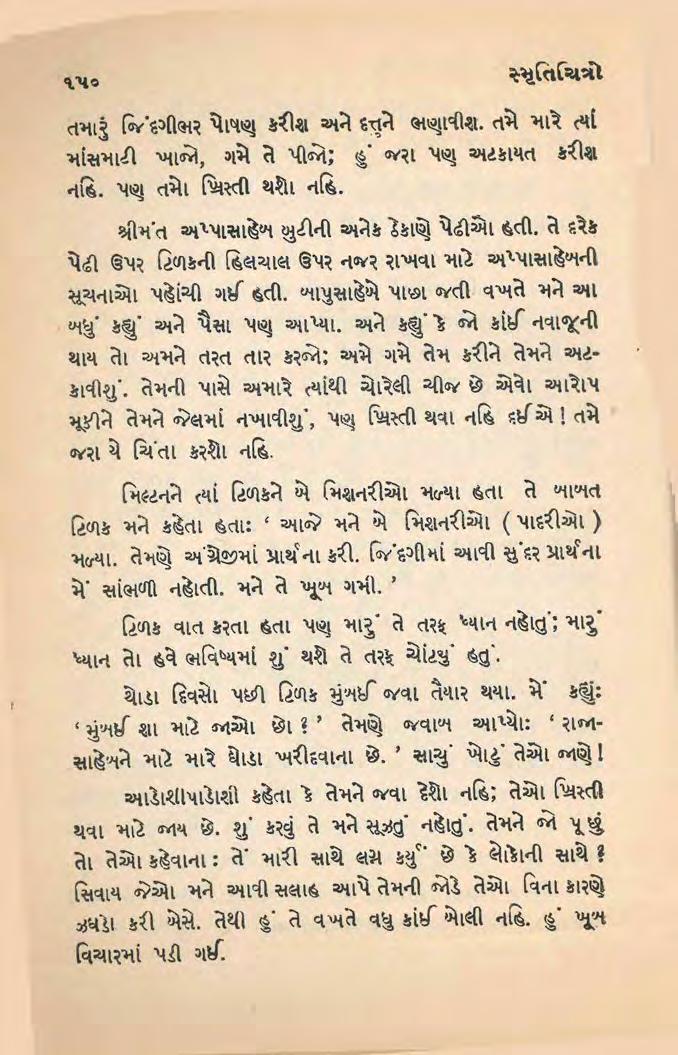 ૧૫૦
સ્મૃતિચિત્રો
તમારું જિંદગીભર પોષણ કરીશ અને દત્તુને ભણાવીશ. તમે મારે ત્યાં
માંસમાટી ખાજો, ગમે તે પીજો; હું જરા પણ અટકાયત કરીશ
નહિ. પણ તમે ખ્રિસ્તી થશો નહિ.
શ્રીમંત અપ્પાસાહેબ બુટીની અનેક ઠેકાણે પેઢીઓ હતી. તે દરેક
પેઢી ઉપર ટિળકની હિલચાલ ઉપર નજર રાખવા માટે અપ્પાસાહેબની
સૂચનાઓ પહોંચી ગઈ હતી. બાપુસાહેબે પાછા જતી વખતે મને આ
બધું કહ્યું અને પૈસા પણ આપ્યા. અને કહ્યું કે જો કાંઈ નવાજૂની
થાય તો અમને તરત તાર કરજો; અમે ગમે તેમ કરીને તેમને અટ-
કાવીશું. તેમની પાસે અમારે ત્યાંથી ચોરેલી ચીજ છે એવો આરોપ
મૂકીને તેમને જેલમાં નખાવીશું, પણ ખ્રિસ્તી થવા નહિ દઈએ ! તમે
જરા યે ચિંતા કરશો નહિ.
મિલ્ટનને ત્યાં ટિળકને બે મિશનરીઓ મળ્યા હતા તે બાબત
ટિળક મને કહેતા હતાઃ ‘ આજે મને બે મિશનરીઓ ( પાદરીઓ )
મળ્યા. તેમણે અંગ્રેજીમાં પ્રાર્થના કરી. જિંદગીમાં આવી સુંદર પ્રાર્થના
મેં સાંભળી નહોતી. મને તે ખૂબ ગમી. ’
ટિળક વાત કરતા હતા પણ મારું તે તરફ ધ્યાન નહોતું; મારું
ધ્યાન તો હવે ભવિષ્યમાં શું થશે તે તરફ ચોંટયું હતું.
થોડા દિવસો પછી ટિળક મુંબઈ જવા તૈયાર થયા. મેં કહ્યુંઃ
‘ મુંબઈ શા માટે જાઓ છો ? ’ તેમણે જવાબ આપ્યોઃ ‘ રાજા-
સાહેબને માટે મારે ઘોડા ખરીદવાના છે. ’ સાચું ખોટું તેઓ જાણે !
આડોશીપાડોશી કહેતા કે તેમને જવા દેશો નહિ; તેઓ ખ્રિસ્તી
થવા માટે જાય છે. શું કરવું તે મને સૂઝતું નહોતું. તેમને જો પૂછ્યું
તો તેઓ કહેવાના : તેં મારી સાથે લગ્ન કર્યું છે કે લોકોની સાથે ?
સિવાય જેઓ મને આવી સલાહ આપે તેમની જોડે તેઓ વિના કારણે
ઝઘડો કરી બેસે. તેથી હું તે વખતે વધુ કાંઈ બોલી નહિ. હું ખૂબ
વિચારમાં પડી ગઈ.